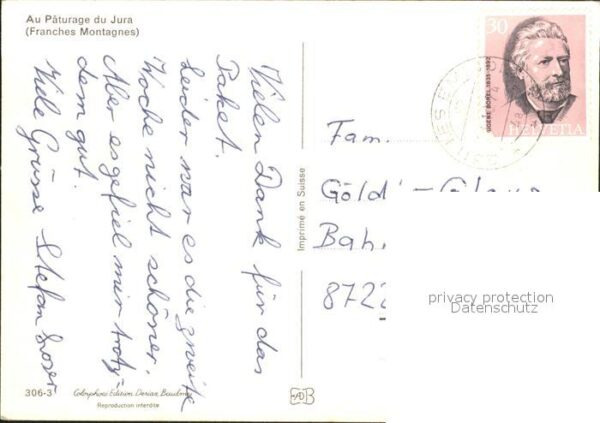 Au Pâturage du Jura
(Franches Montagnes)
Vielen Dank für das
Paket.
Leider war es die zweite
Woche nicht schöner.
Aber es gefiel mir trotz-
dem gut.
Viele Grüsse Stefan
306-3
Colorphoto Edition
Reproduction interdite
Imprimé en Suisse
30
HELVETIA
Fam.
Göldi -
Bah
8722
privacy protection
Datenschutz